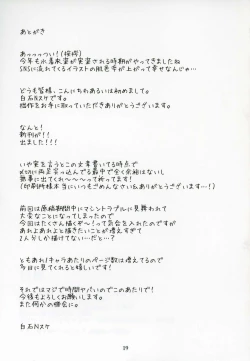 あとがき
あっっっつい！(挨拶)
今年も水着衣装が実装される時期がやってきましたね
SNSに流れてくるイラストの肌色率が上がって幸せなんじゃ…
どうも皆様、こんにちわあるいは初めまして。
白石Nスケです。
拙作をお手に取っていただきありがとうございます。
なんと！
新刊が！！
出ました！！！
いや実を言うとこの文章書いてる時点で
無事に出てくれ〜〜〜って祈ってます！
(印刷所様本当にいつもごめんなさい&ありがとうございます…！)
前回は原稿期間中にマシントラブルに見舞われて
大変なことになってしまったので
今回はたくさん描くぞ〜！って気合を入れたのですが
あれよあれよと描きたいことが増えすぎて
2人分しか描けてない…だと…？
ともあれ1キャラあたりのページ数は増えてるので
多目に見てくれると嬉しいです！
それではマジで時間ヤバいのでこのあたりで！
今後もよろしくお願いします。
また何かの機会に。
白石Nスケ
29